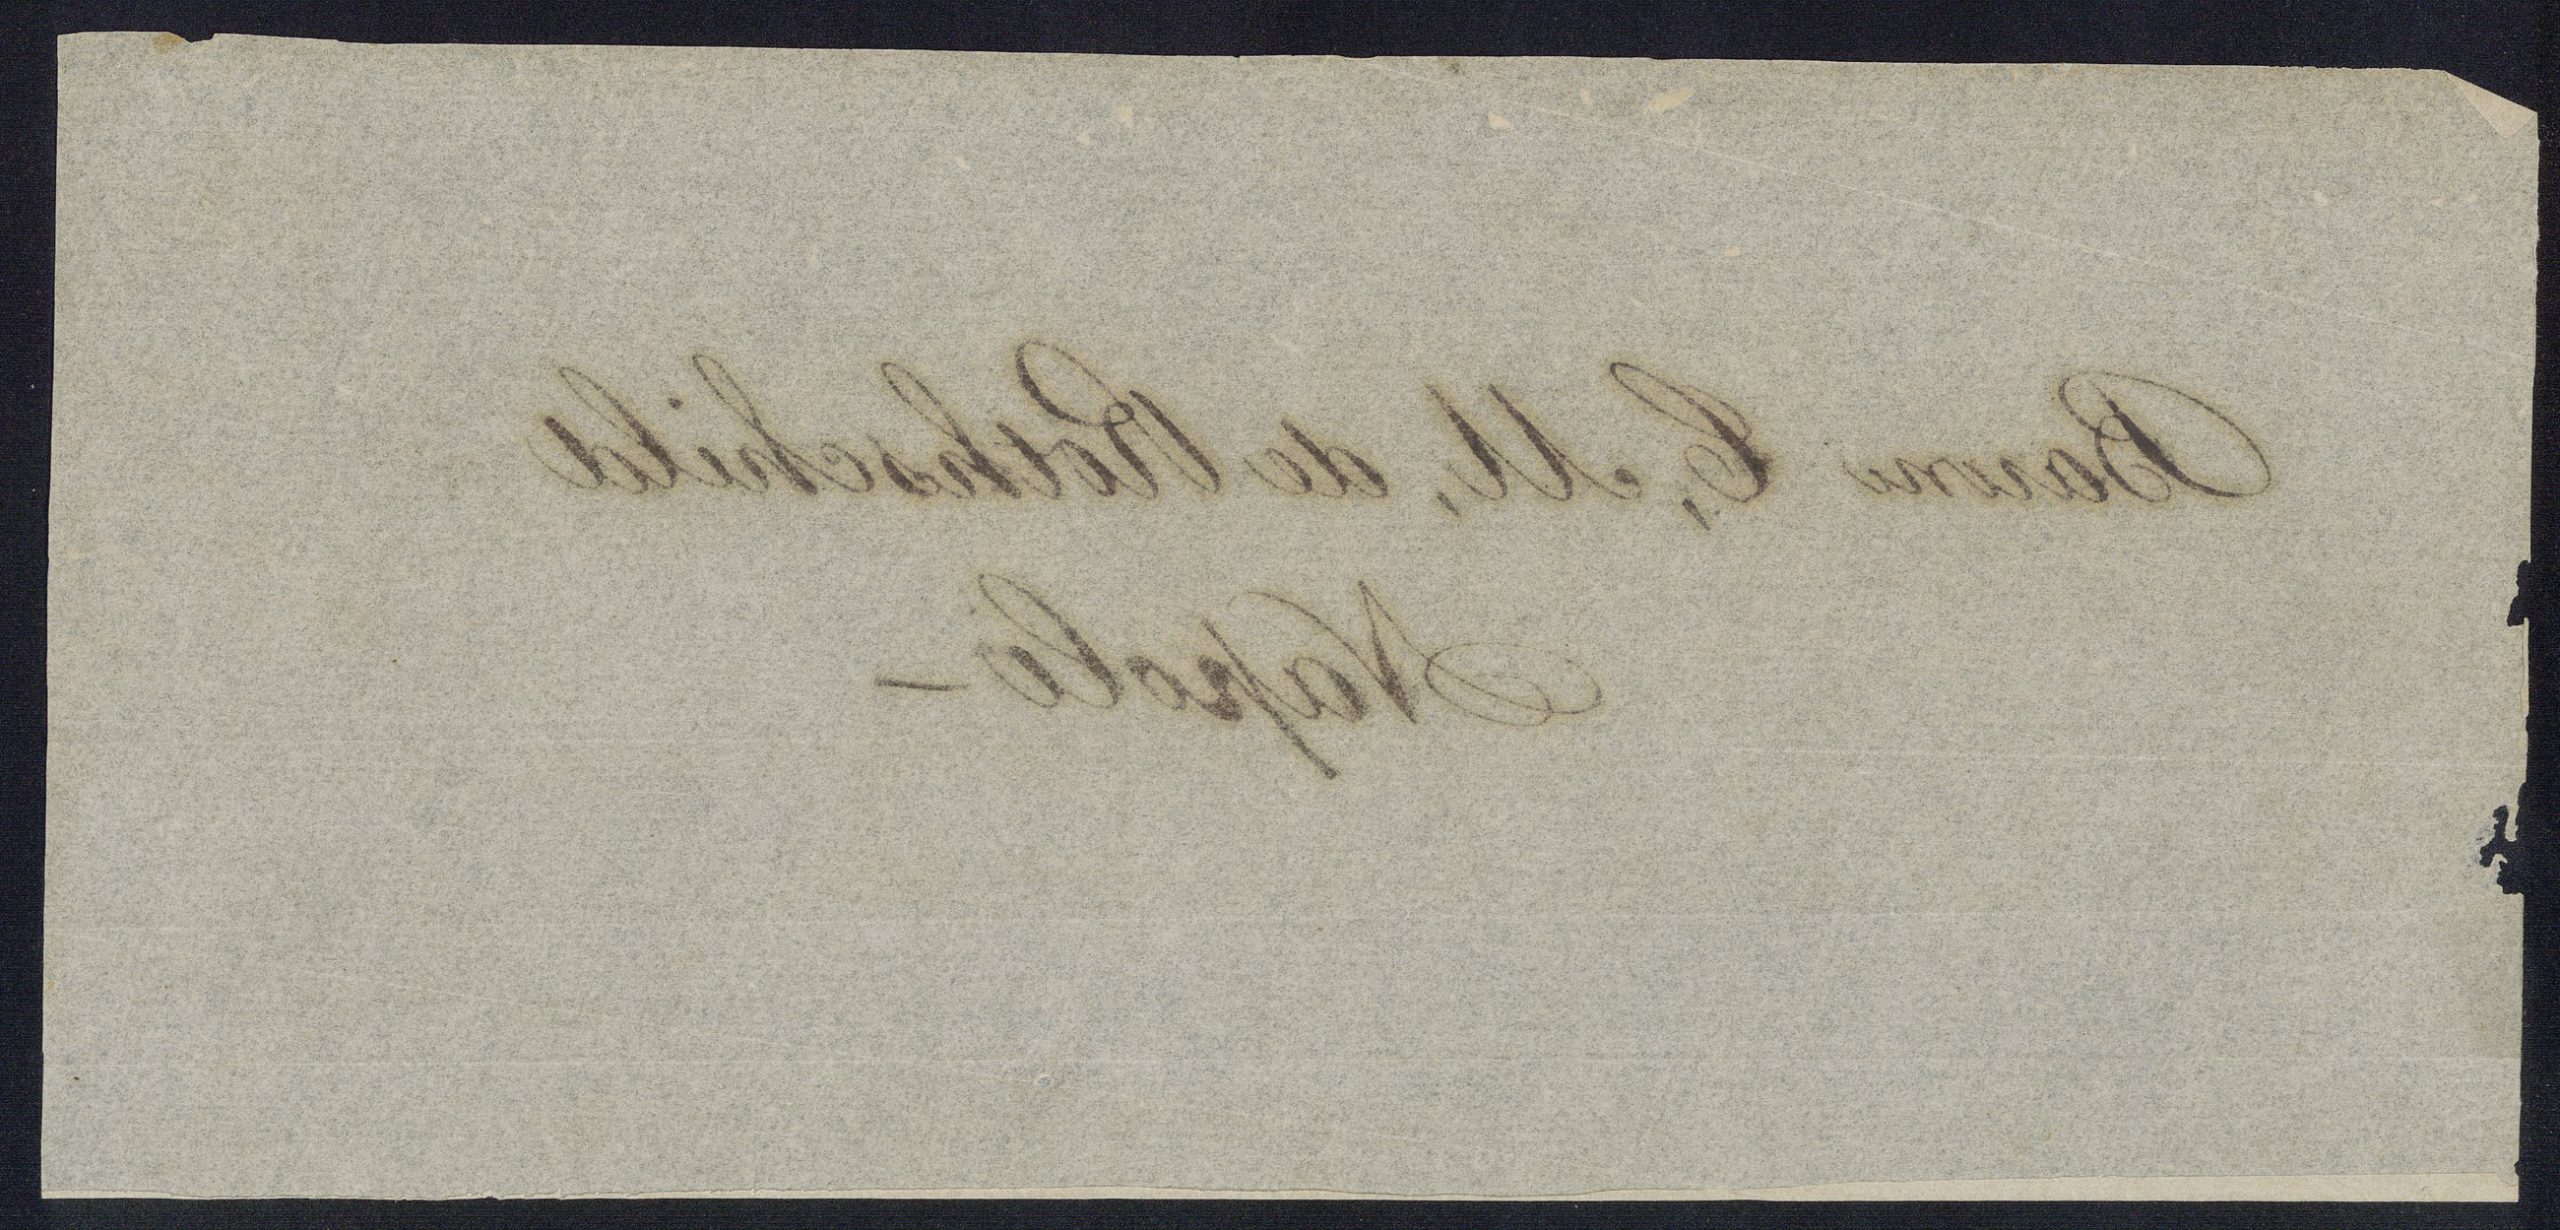 Barone C. M. de Rothschild
Napoli –